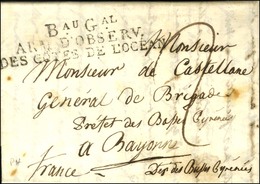 BAU GAL
ARM. D'OBSERV.
DES CÔTES DE L'OCÉAN
Monsieur
Monsieur de Castellane
Général de Brigade
Préfet des Basses Pyrenées
a Bayonne
france Dep. des Basses Pyrenées